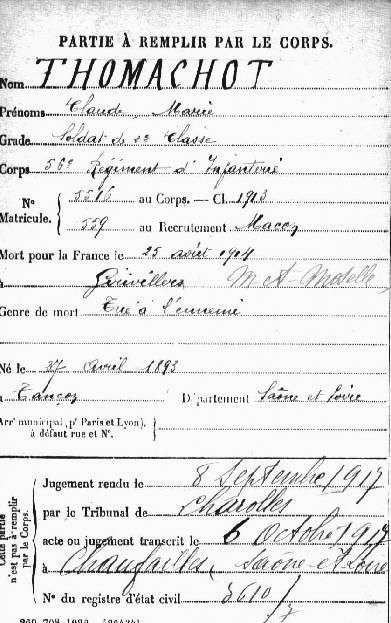 PARTIE À REMPLIR PAR LE CORPS.
Nom THOMACHOT
Prénoms Claude Marie
Grade Soldat de 2e Classe
Corps 56e Régiment d'Infanterie
N° Matricule. 5516 au Corps. — Cl. 1913
559 au Recrutement Macon
Mort pour la France le 25 août 1914
à M et Moselle
Genre de mort Tué à l'ennemi
Né le 27 avril 1893
à Tancon Département Saône et Loire
Arr' municipal (p' Paris et Lyon),
à défaut rue et N°.
Cette partie n'est pas à remplir par le Corps.
Jugement rendu le 8 Septembre 1917
par le Tribunal de Charolles
acte ou jugement transcrit le 6 Octobre 1917
à Chauffailles, Saône-et-Loire
N° du registre d'état civil